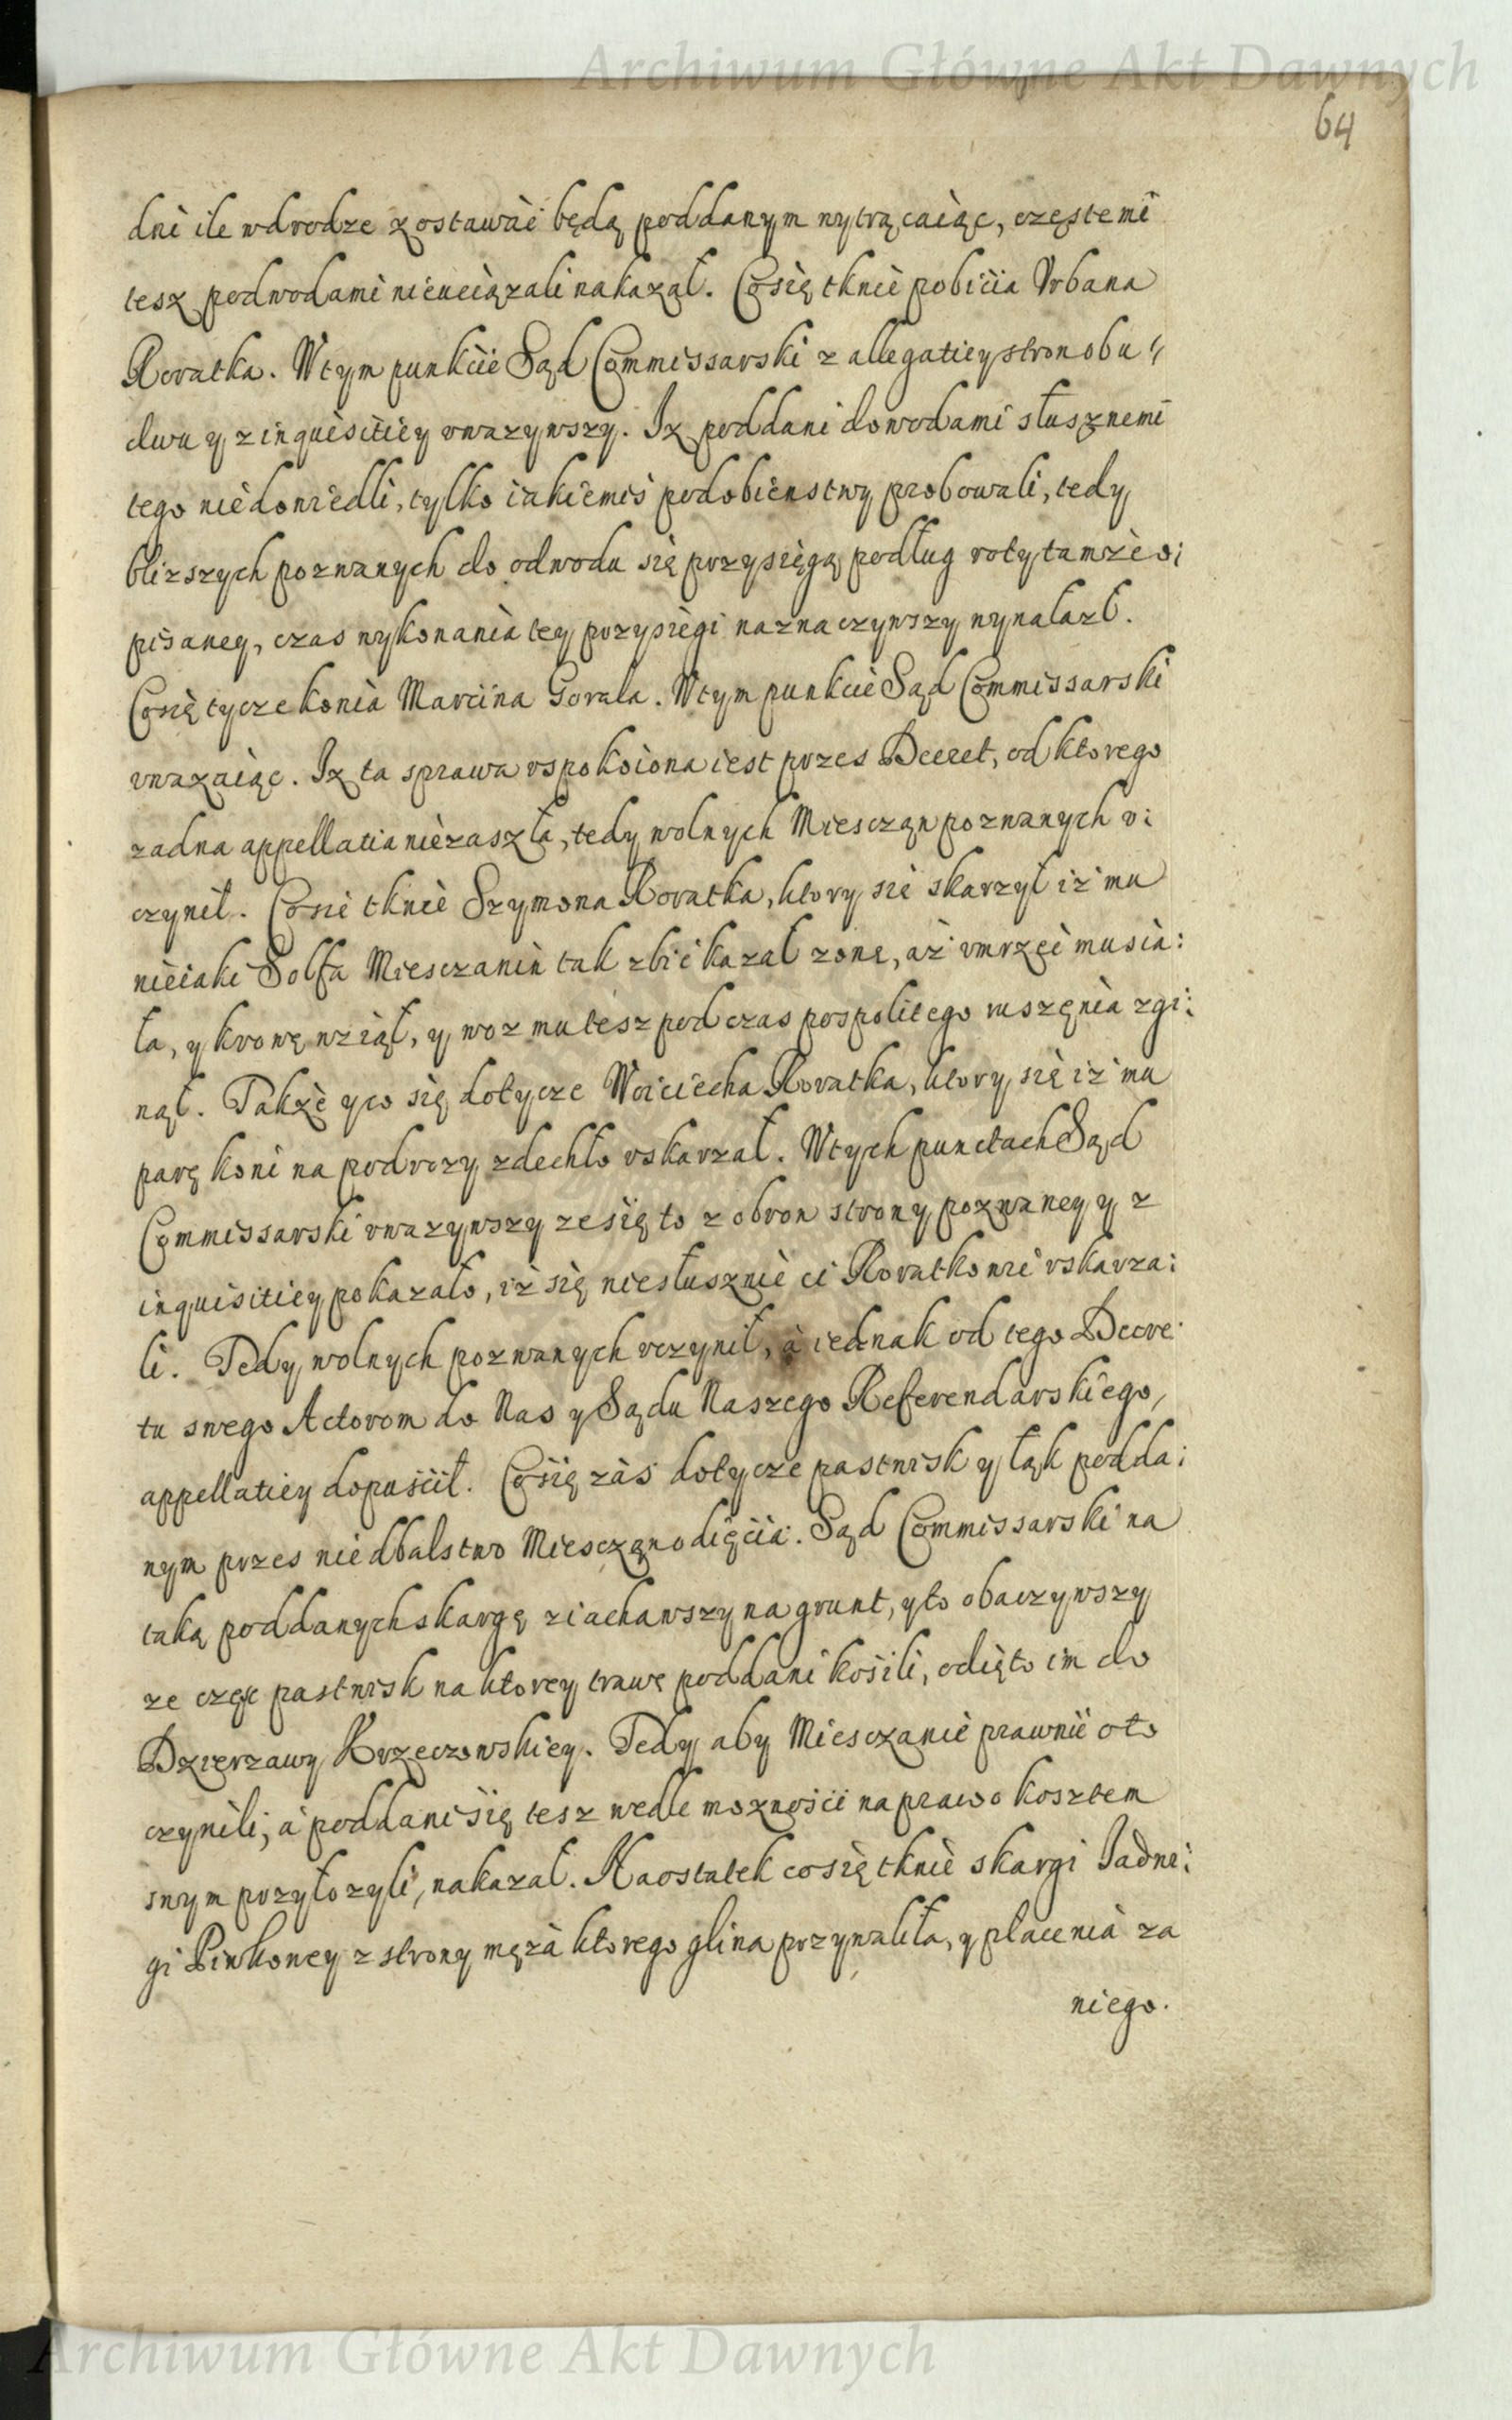 Archiwum Główne Akt Dawnych
64
dni ile wdrodze zostawać będą poddanym wytrącaiąc, częstemi
tesz podwodami nieuciązali nakazał. Cosię tknie pobicia Vrbana
Roratka. Wtym punkcie Sąd Commissarski z allegatiey stron obu
dwu y z inquisitiey vwazywszy. Iz poddani dowodami słusznemi
tego niedowiedli, tylko iakiemiś podobienstwy probowali, tedy
blizszych pozwanych do odwodu się przysięgą podług roty tamże o:
pisaney, czas wykonania tey przysięgi naznaczywszy wynalazł.
Cosię tycze konia Marcina Gorala. Wtym punkcie Sąd Commissarski
vwazaiąc. Iz ta sprawa vspokoiona iest przes Decret, od ktorego
zadna appellatia niezaszła, tedy wolnych Miesczan pozwanych v:
czynił. Cosie tknie Szymona Roratka, ktory sie skarzył iż mu
nieiaki Solfa Miesczanin tak zbić kazał zonę, aż vmrzeć musia:
ła, y krowę wziął, y woz mu tesz pod czas pospolitego ruszęnia zgi:
nął. Także yco się dotycze Woiciecha Roratka, ktory się iż mu
parę koni na podrozy zdechło vskarzał. Wtych punctach Sąd
Commissarski vwazywszy ze się to z obron strony pozwaney y z
inquisitiey pokazało, iż się niesłusznie ci Roratkowie vskarza:
li. Tedy wolnych pozwanych vczynił, à iednak od tego Decre:
tu swego Actorom do Nas y Sądu Naszego Referendarskiego,
appellatiey dopuścił. Cosię zàś dotycze pastwisk y łąk podda:
nym przes niedbalstwo Miesczęn odięcia. Sąd Commissarski na
taką poddanych skargę ziachawszy na grunt, yto obaczywszy
ze częsc pastwisk na ktorey trawę poddani kosili, odięto im do
Dzierzawy Krzeczowskiey. Tedy aby Miesczanie prawnie oto
czynili, à poddani się tesz wedle moznosci na prawo kosztem
swym przyłozyli, nakazał. Naostatek co się tknie skargi Jadwi:
gi Piwkowey z strony męża ktorego glina przywaliła, y płacenia za
niego.
Archiwum Główne Akt Dawnych